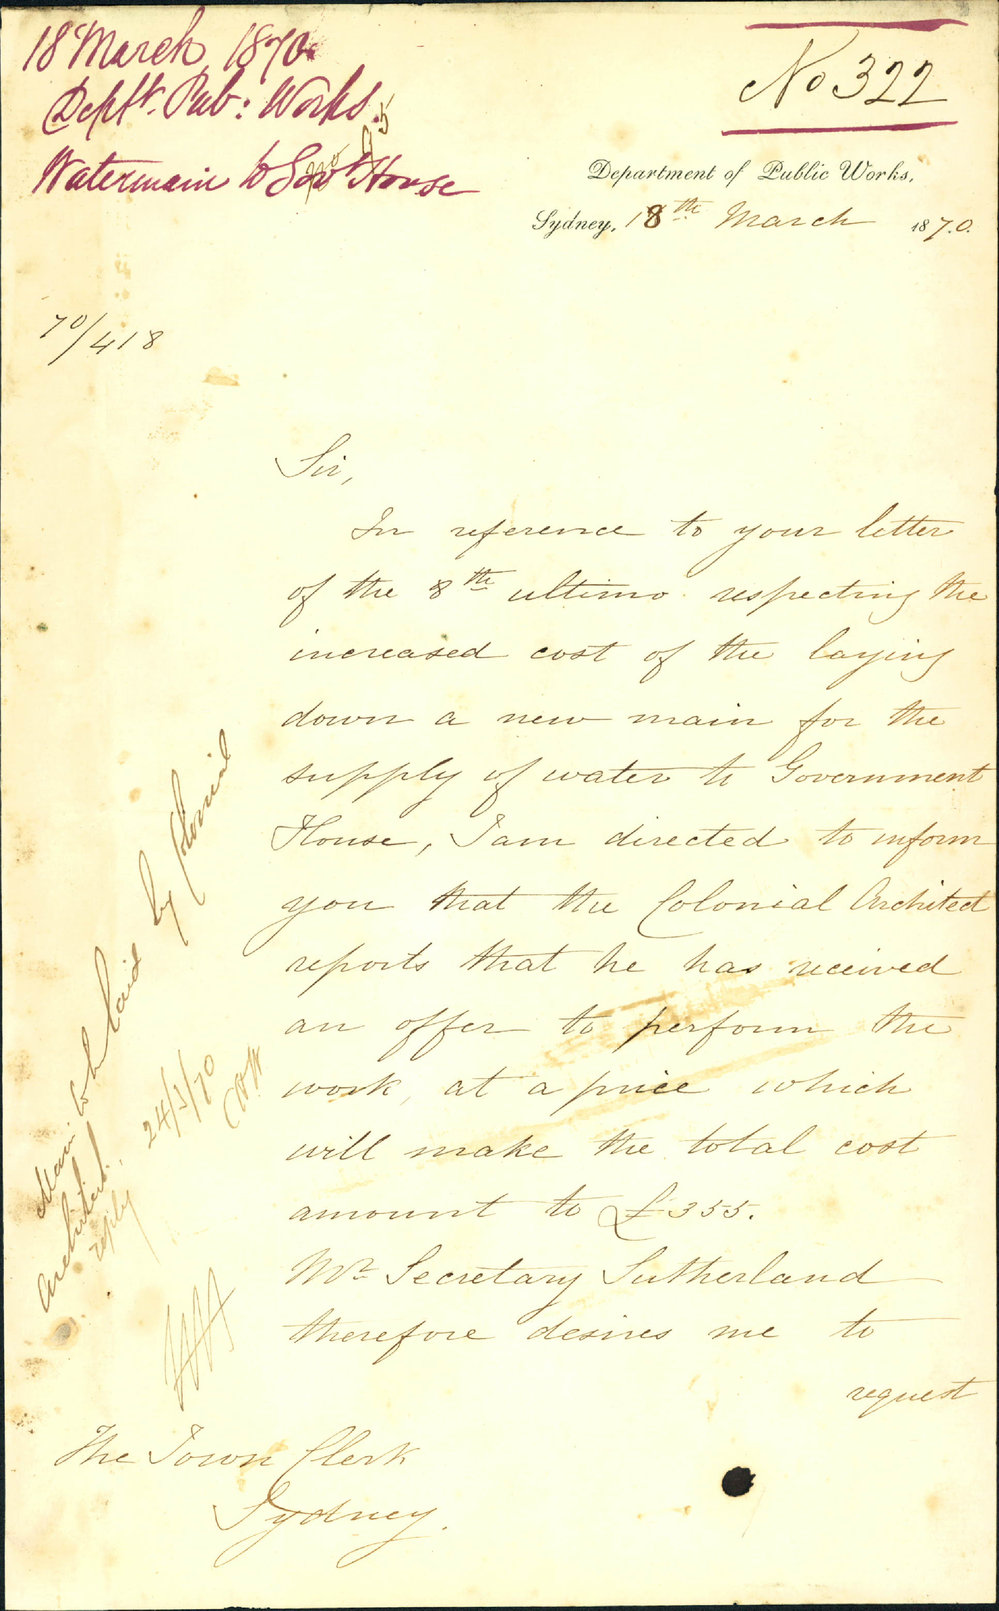 18 March 1870
Deptt. Pub: Works.
Watermain to Govt House
No 322
Department of Public Works,
Sydney, 18th March 1870.
70/418
Sir,
In reference to your letter
of the 8th ultimo respecting the
increased cost of the laying
down a new main for the
supply of water to Government
House, I am directed to inform
you that the Colonial Architect
reports that he has received
an offer to perform the
work, at a price which
will make the total cost
amount to £355.
Mr Secretary Sutherland
therefore desires me to
request
The Town Clerk
Sydney.
Main to be laid by Colonial
Architect.
reply
24/3/70